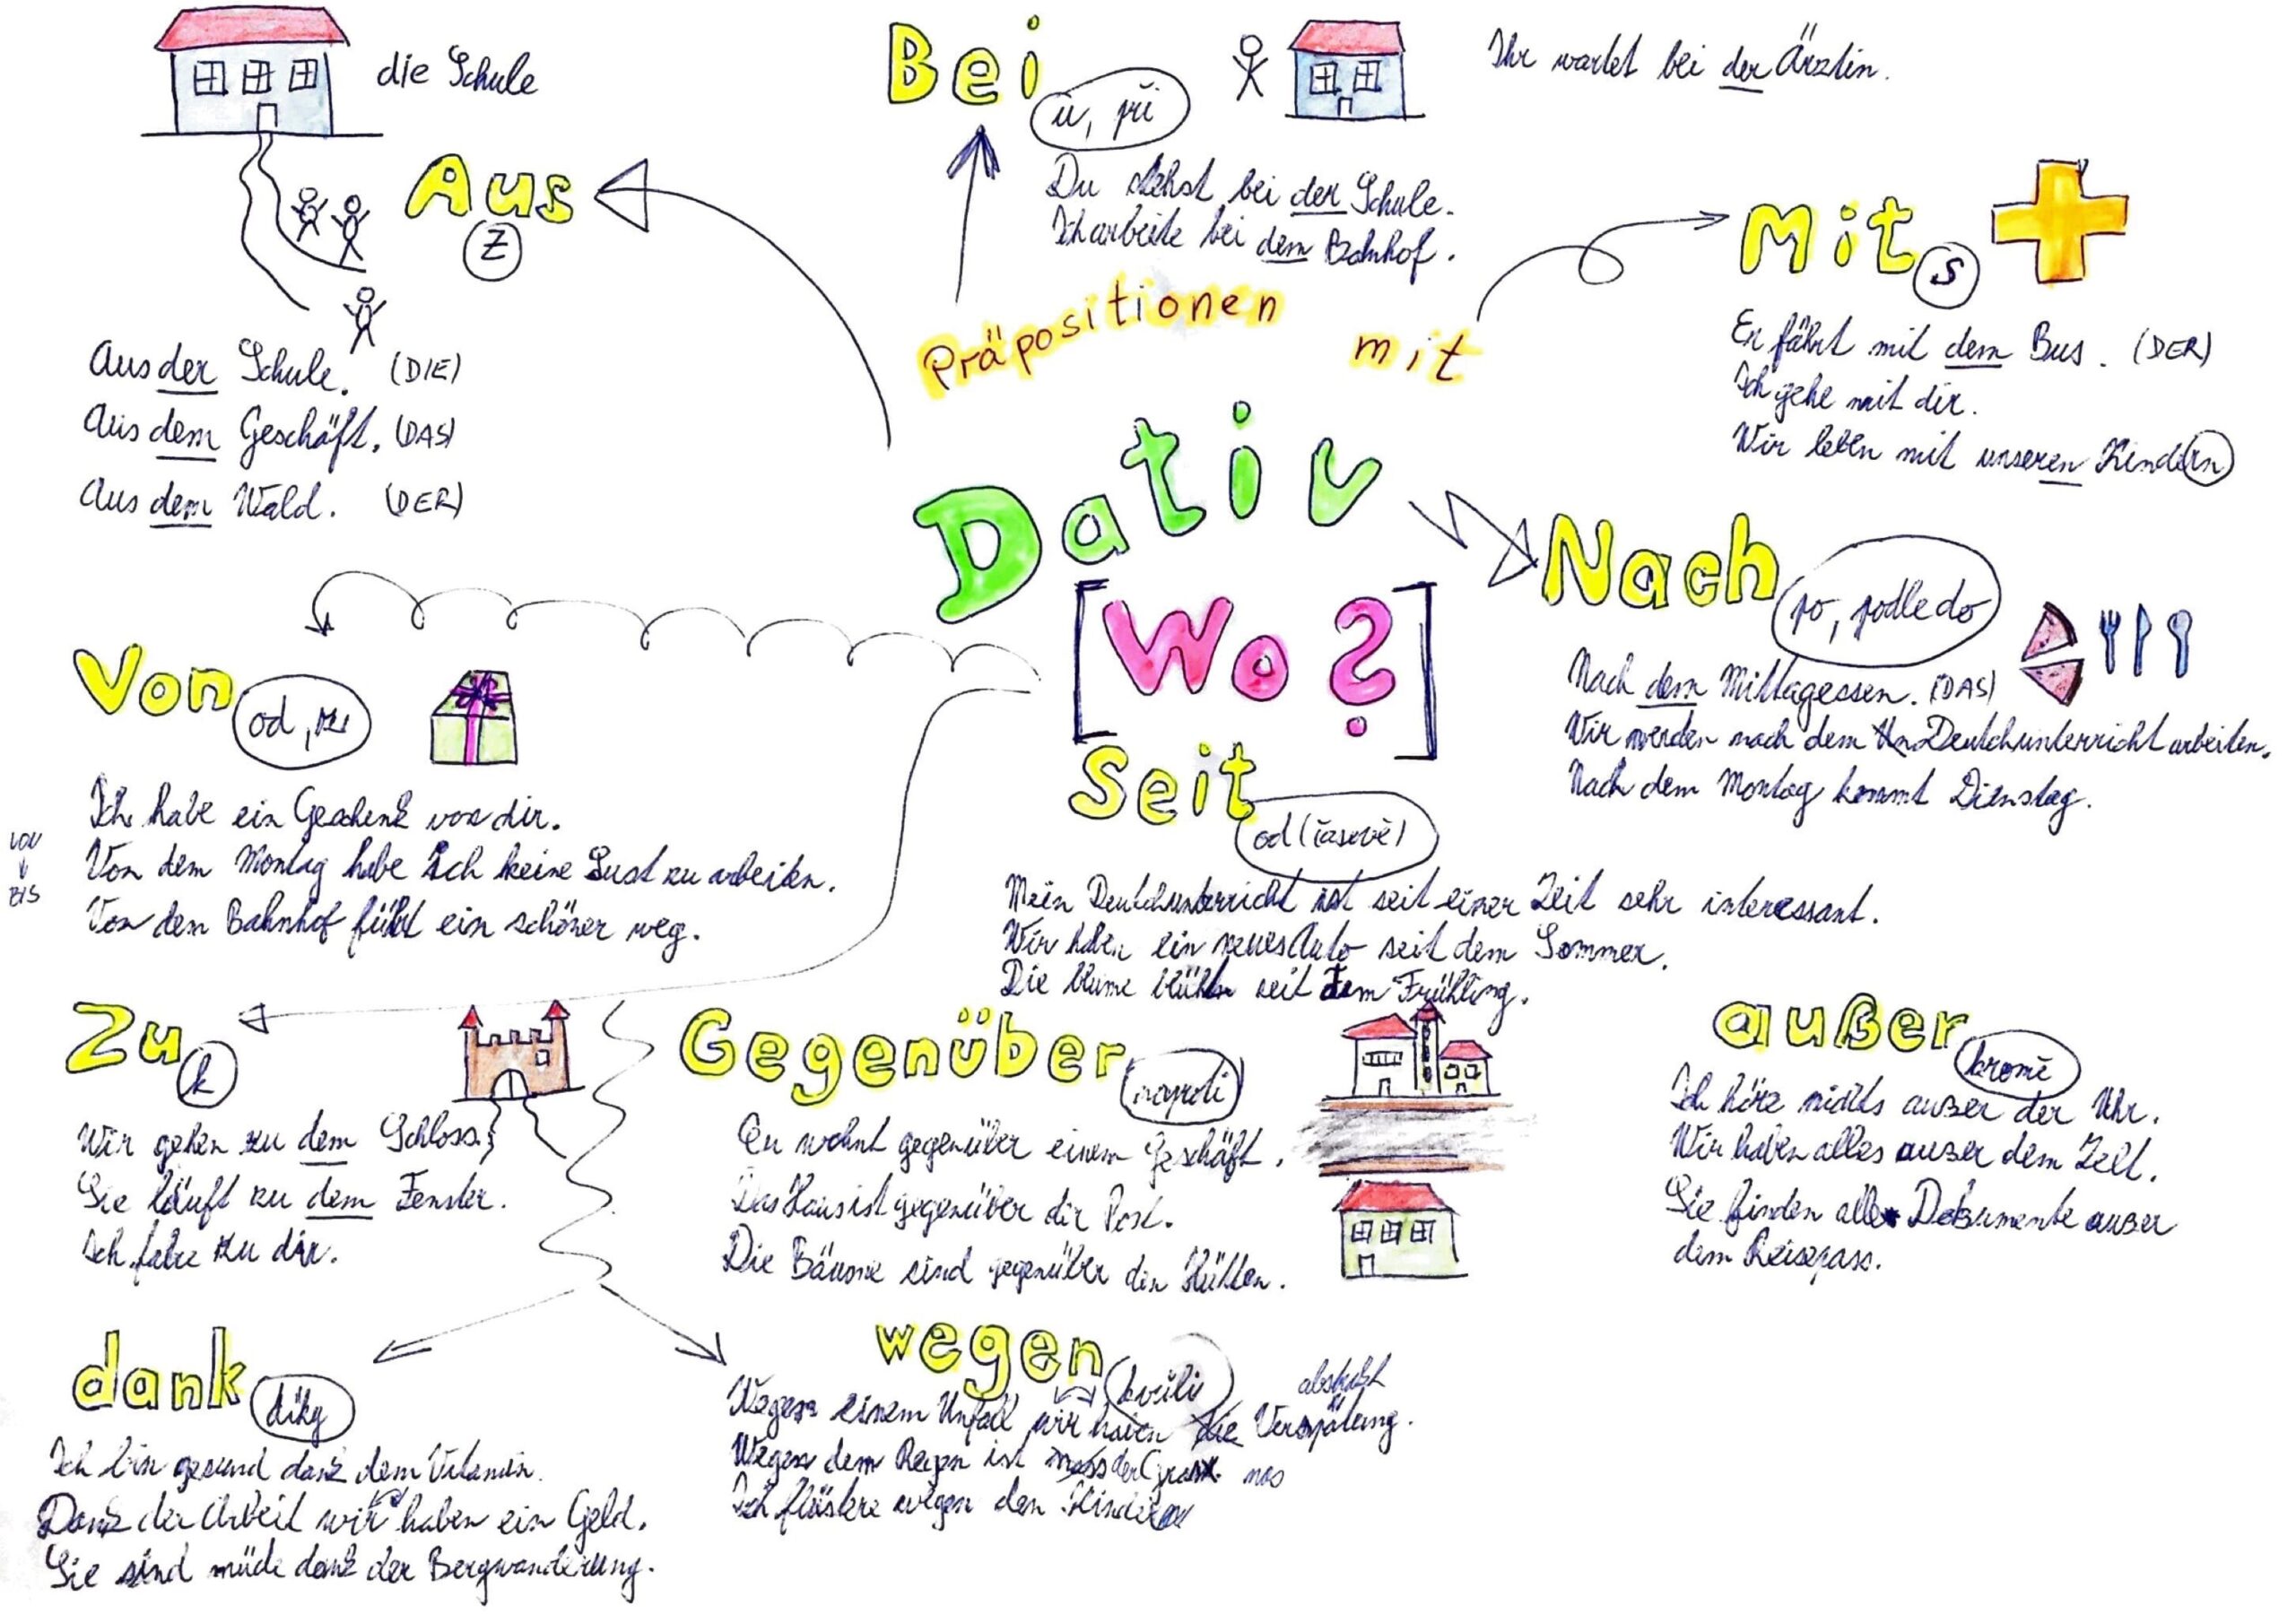 die Schule
Aus
z
Aus der Schule. (DIE)
Aus dem Geschäft. (DAS)
Aus dem Wald. (DER)
Bei
u, při
Ihr wartet bei der Ärztin.
Du stehst bei der Schule.
Ich arbeite bei dem Bahnhof.
Präpositionen mit
Dativ
[Wo?]
Mit
s
Er fährt mit dem Bus. (DER)
Ich gehe mit dir.
Wir leben mit unseren Kindern
Nach
po, podle do
Nach dem Mittagessen. (DAS)
Wir werden nach dem Deutchunterricht arbeiten.
Nach dem Montag kommt Dienstag.
Von
od, z
Ich habe ein Geschenk von dir.
VON
BIS
Von dem Montag habe ich keine Lust zu arbeiten.
Von dem Bahnhof führt ein schöner weg.
Seit
od (časově)
Mein Deutchunterricht ist seit einer Zeit sehr interessant.
Wir haben ein neues Auto seit dem Sommer.
Die blume blühen seit dem Frühling.
Zu
k
Wir gehen zu dem Schloss.
Sie läuft zu dem Fenster.
Ich fahre zu dir.
Gegenüber
naproti
Er wohnt gegenüber einem Geschäft.
Das Haus ist gegenüber der Post.
Die Bäume sind gegenüber den Hütten.
außer
kromě
Ich höre nichts außer der Uhr.
Wir haben alles außer dem Zelt.
Sie finden alle Dokumente außer
dem Reisepass.
dank
díky
Ich bin gesund dank dem Vitamin.
Dank der Arbeit wir haben ein Geld.
Sie sind müde dank der Bergwanderung.
wegen
kvůli
Wegen einem Unfall wir haben die Verspätung.
Wegen dem Regen ist der Gras nas
Ich flüstere wegen den Kindern